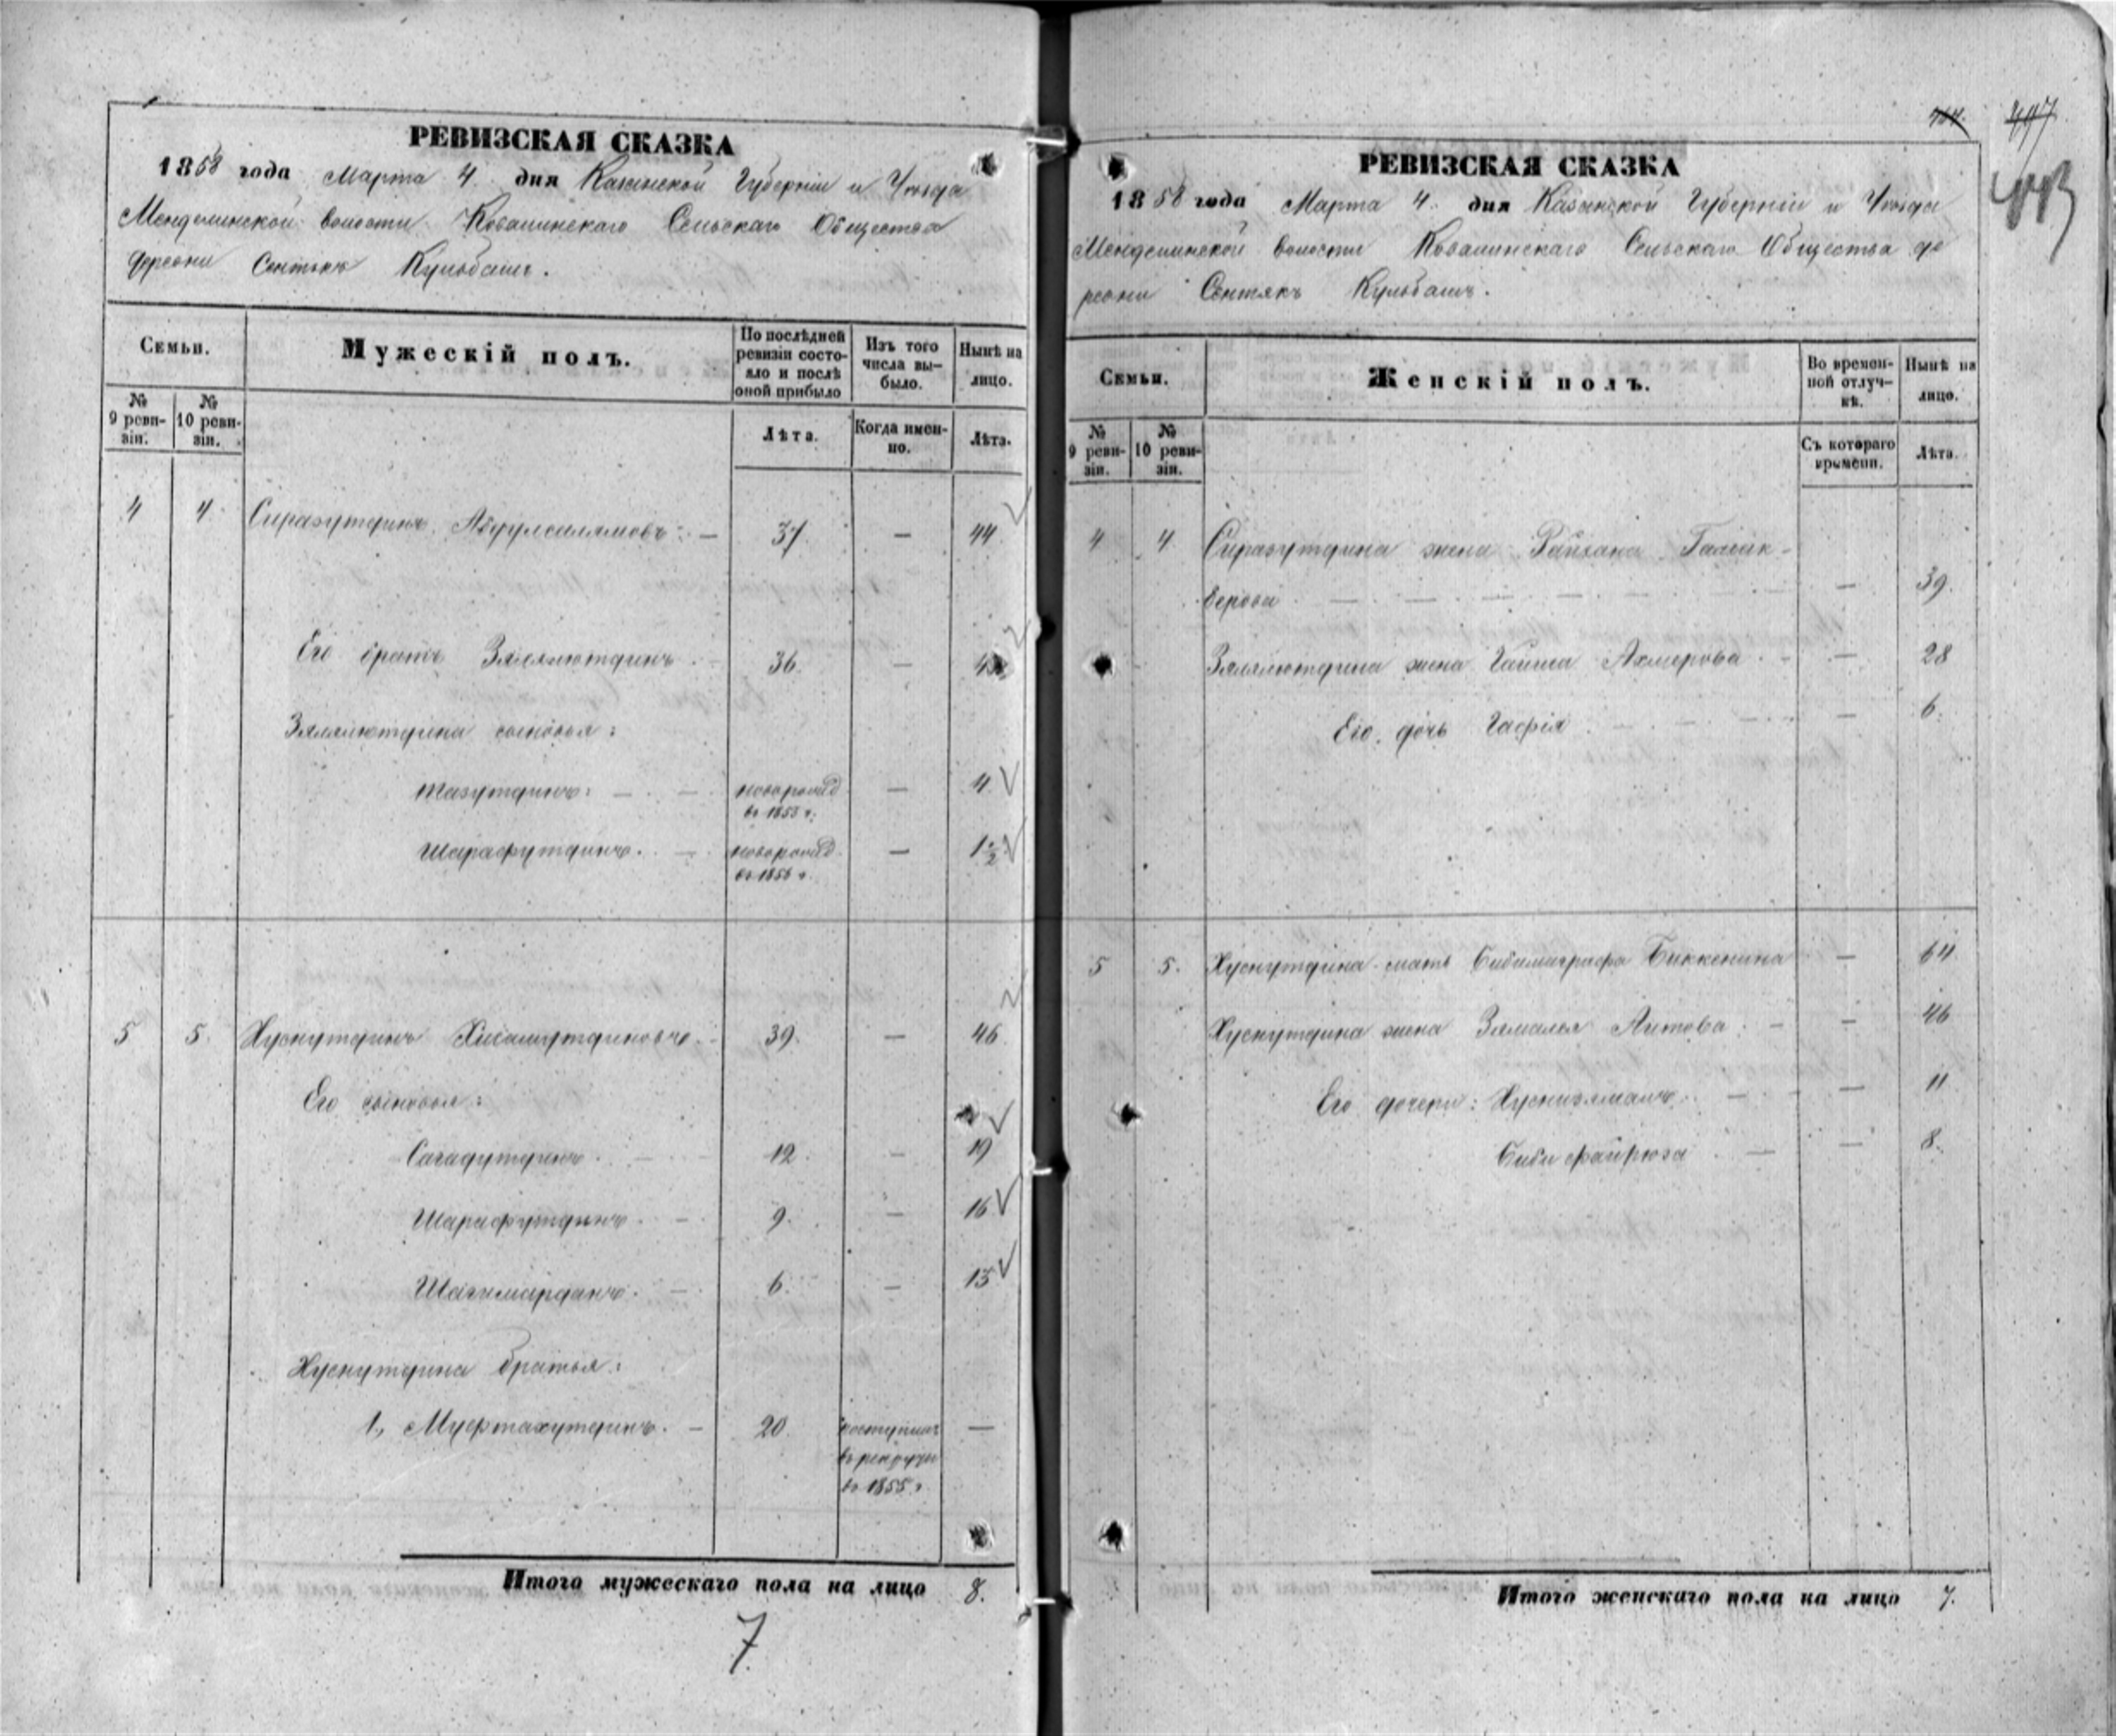 РЕВИЗСКАЯ СКАЗКА
1858 года Марта 4. дня Казанской Губерніи и Уѣзда
Менделинской волости Ковалинскаго Сельскаго Общества
деревни Сентякъ Кульбашъ.
Семьи.
Мужескій полъ.
По послѣдней ревизіи состояло и послѣ оной прибыло
Изъ того числа вы-было.
Нынѣ на лицо.
№ 9 реви-зіи.
№ 10 реви-зіи.
Лѣта.
Когда имен-но.
Лѣта.
4 4 Сиразутдинъ Абдулсалямовъ: — 37. — 44
Его братъ Зялялютдинъ 36. — 43
Зялялютдина сыновья:
Тазутдинъ: — новорожд — 4
въ 1853 г.
Шарафутдинъ. — новорожд. — 1½
въ 1856 г.
5 5. Хуснутдинъ Хисамутдиновъ. 39. — 46
Его сыновья:
Сагадутдинъ. 12. — 19
Шарафутдинъ. — 9. — 16
Шагимарданъ. — 6. — 13
Хуснутдина братья:
1, Муфтахутдинъ. — 20. поступилъ —
въ рекруты
въ 1855 г.
Итого мужескаго пола на лицо 8.
7
497
443
РЕВИЗСКАЯ СКАЗКА
1858 года Марта 4. дня Казанской Губерніи и Уѣзда
Менделинской волости Ковалинскаго Сельскаго Общества де
ревни Сентякъ Кульбашъ.
Семьи.
Женскій полъ.
Во времен-ной отлуч-кѣ.
Нынѣ на лицо.
№ 9 реви-зіи.
№ 10 реви-зіи.
Съ котораго времени.
Лѣта.
4 4 Сиразутдина жена Райхана
верова — — 39.
Зялялютдина жена Гайша Ахмерова — 28
Его дочь Гафія — 6.
5 5. Хуснутдина мать Биккенина — 64
Хуснутдина жена Зямалея Аитова: — — 46
Его дочери: Хуснизямалъ. — — 11
Биби файрюза — — 8.
Итого женскаго пола на лицо 7.